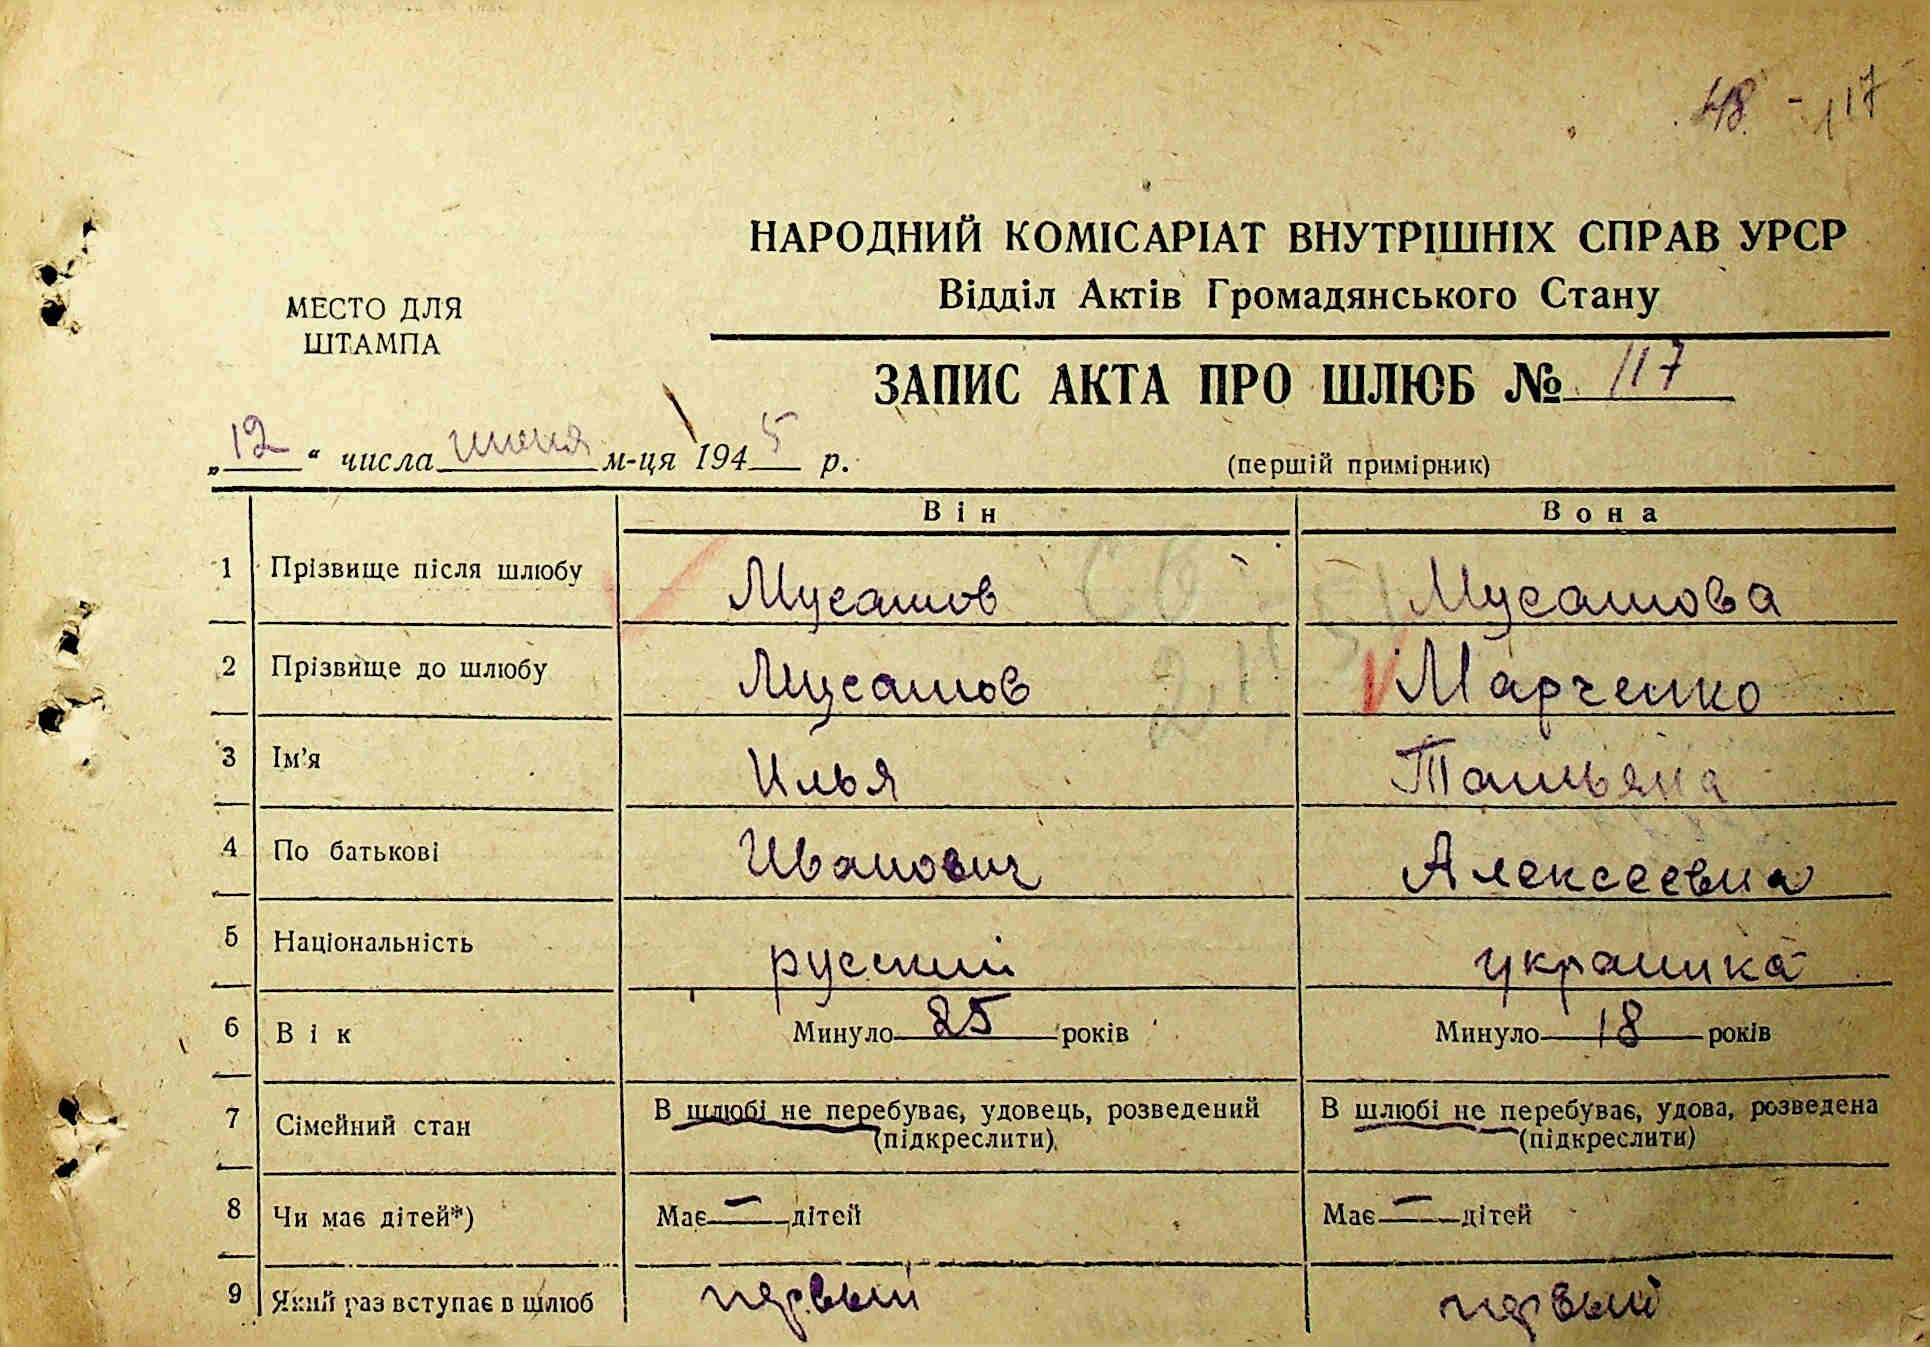 48 - 117
НАРОДНИЙ КОМІСАРІАТ ВНУТРІШНІХ СПРАВ УРСР
Відділ Актів Громадянського Стану
МЕСТО ДЛЯ
ШТАМПА
ЗАПИС АКТА ПРО ШЛЮБ № 117
„12“ числа июня м-ця 1945 р.
(першій примірник)
Він Вона
1 Прізвище після шлюбу Мусатов Мусатова
2 Прізвище до шлюбу Мусатов Марченко
3 Ім'я Илья Татьяна
4 По батькові Иванович Алексеевна
5 Національність русский украинка
6 Вік Минуло 25 років Минуло 18 років
7 Сімейний стан В шлюбі не перебуває, удовець, розведений В шлюбі не перебуває, удова, розведена
(підкреслити) (підкреслити)
8 Чи має дітей*) Має — дітей Має — дітей
9 Який раз вступає в шлюб первый первый